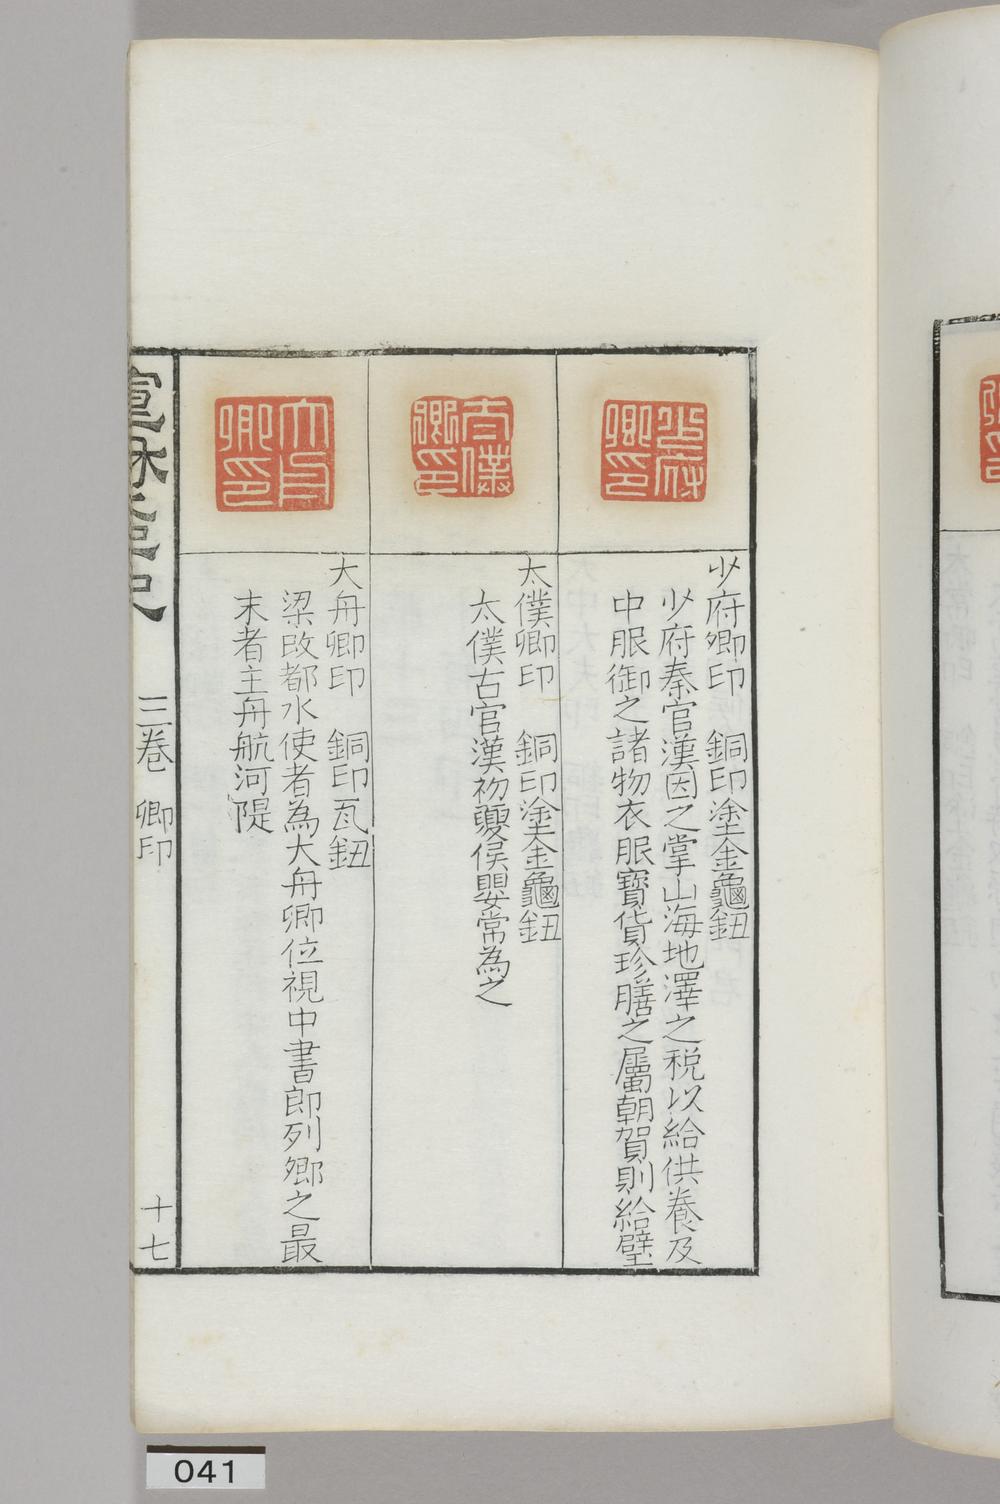 少府卿印
少府卿印　銅印塗金龜鈕
少府秦官漢因之掌山海地澤之稅以給供養及
中服御之諸物衣服寶貨珍膳之屬朝賀則給璧
太僕卿印
太僕卿印　銅印塗金龜鈕
太僕古官漢初夏侯嬰常為之
大舟卿印
大舟卿印　銅印瓦鈕
梁改都水使者為大舟卿位視中書郎列卿之最
末者主舟航河隄
三卷　卿印
十七
041